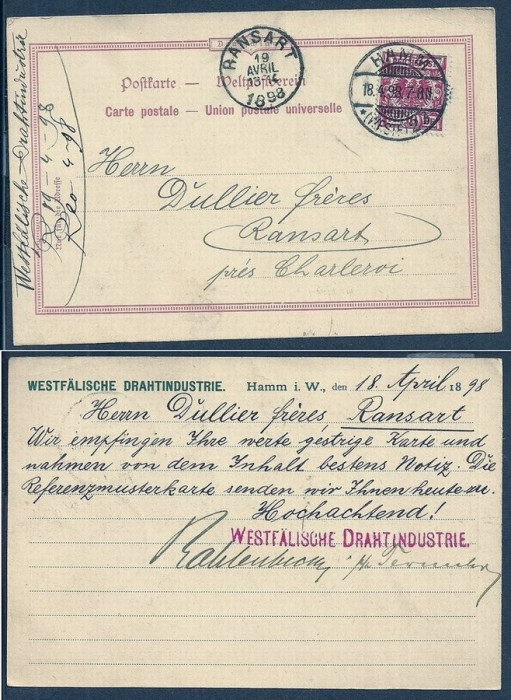 RANSART
19
AVRIL
1898
HAMM
18.4.98.7-8N.
(WESTF.)
Postkarte — Weltpostverein
Carte postale — Union postale universelle
Westfälische Drahtindustrie
R 19-4-98
Herrn
Dullier frères
Ransart
près Charleroi
WESTFÄLISCHE DRAHTINDUSTRIE. Hamm i. W., den 18. April 1898
Herrn Dullier frères, Ransart
Wir empfingen Ihre werte gestrige Karte und
nahmen von dem Inhalt bestens Notiz. Die
Referenzmusterkarte senden wir Ihnen heute
Hochachtend!
WESTFÄLISCHE DRAHTINDUSTRIE.